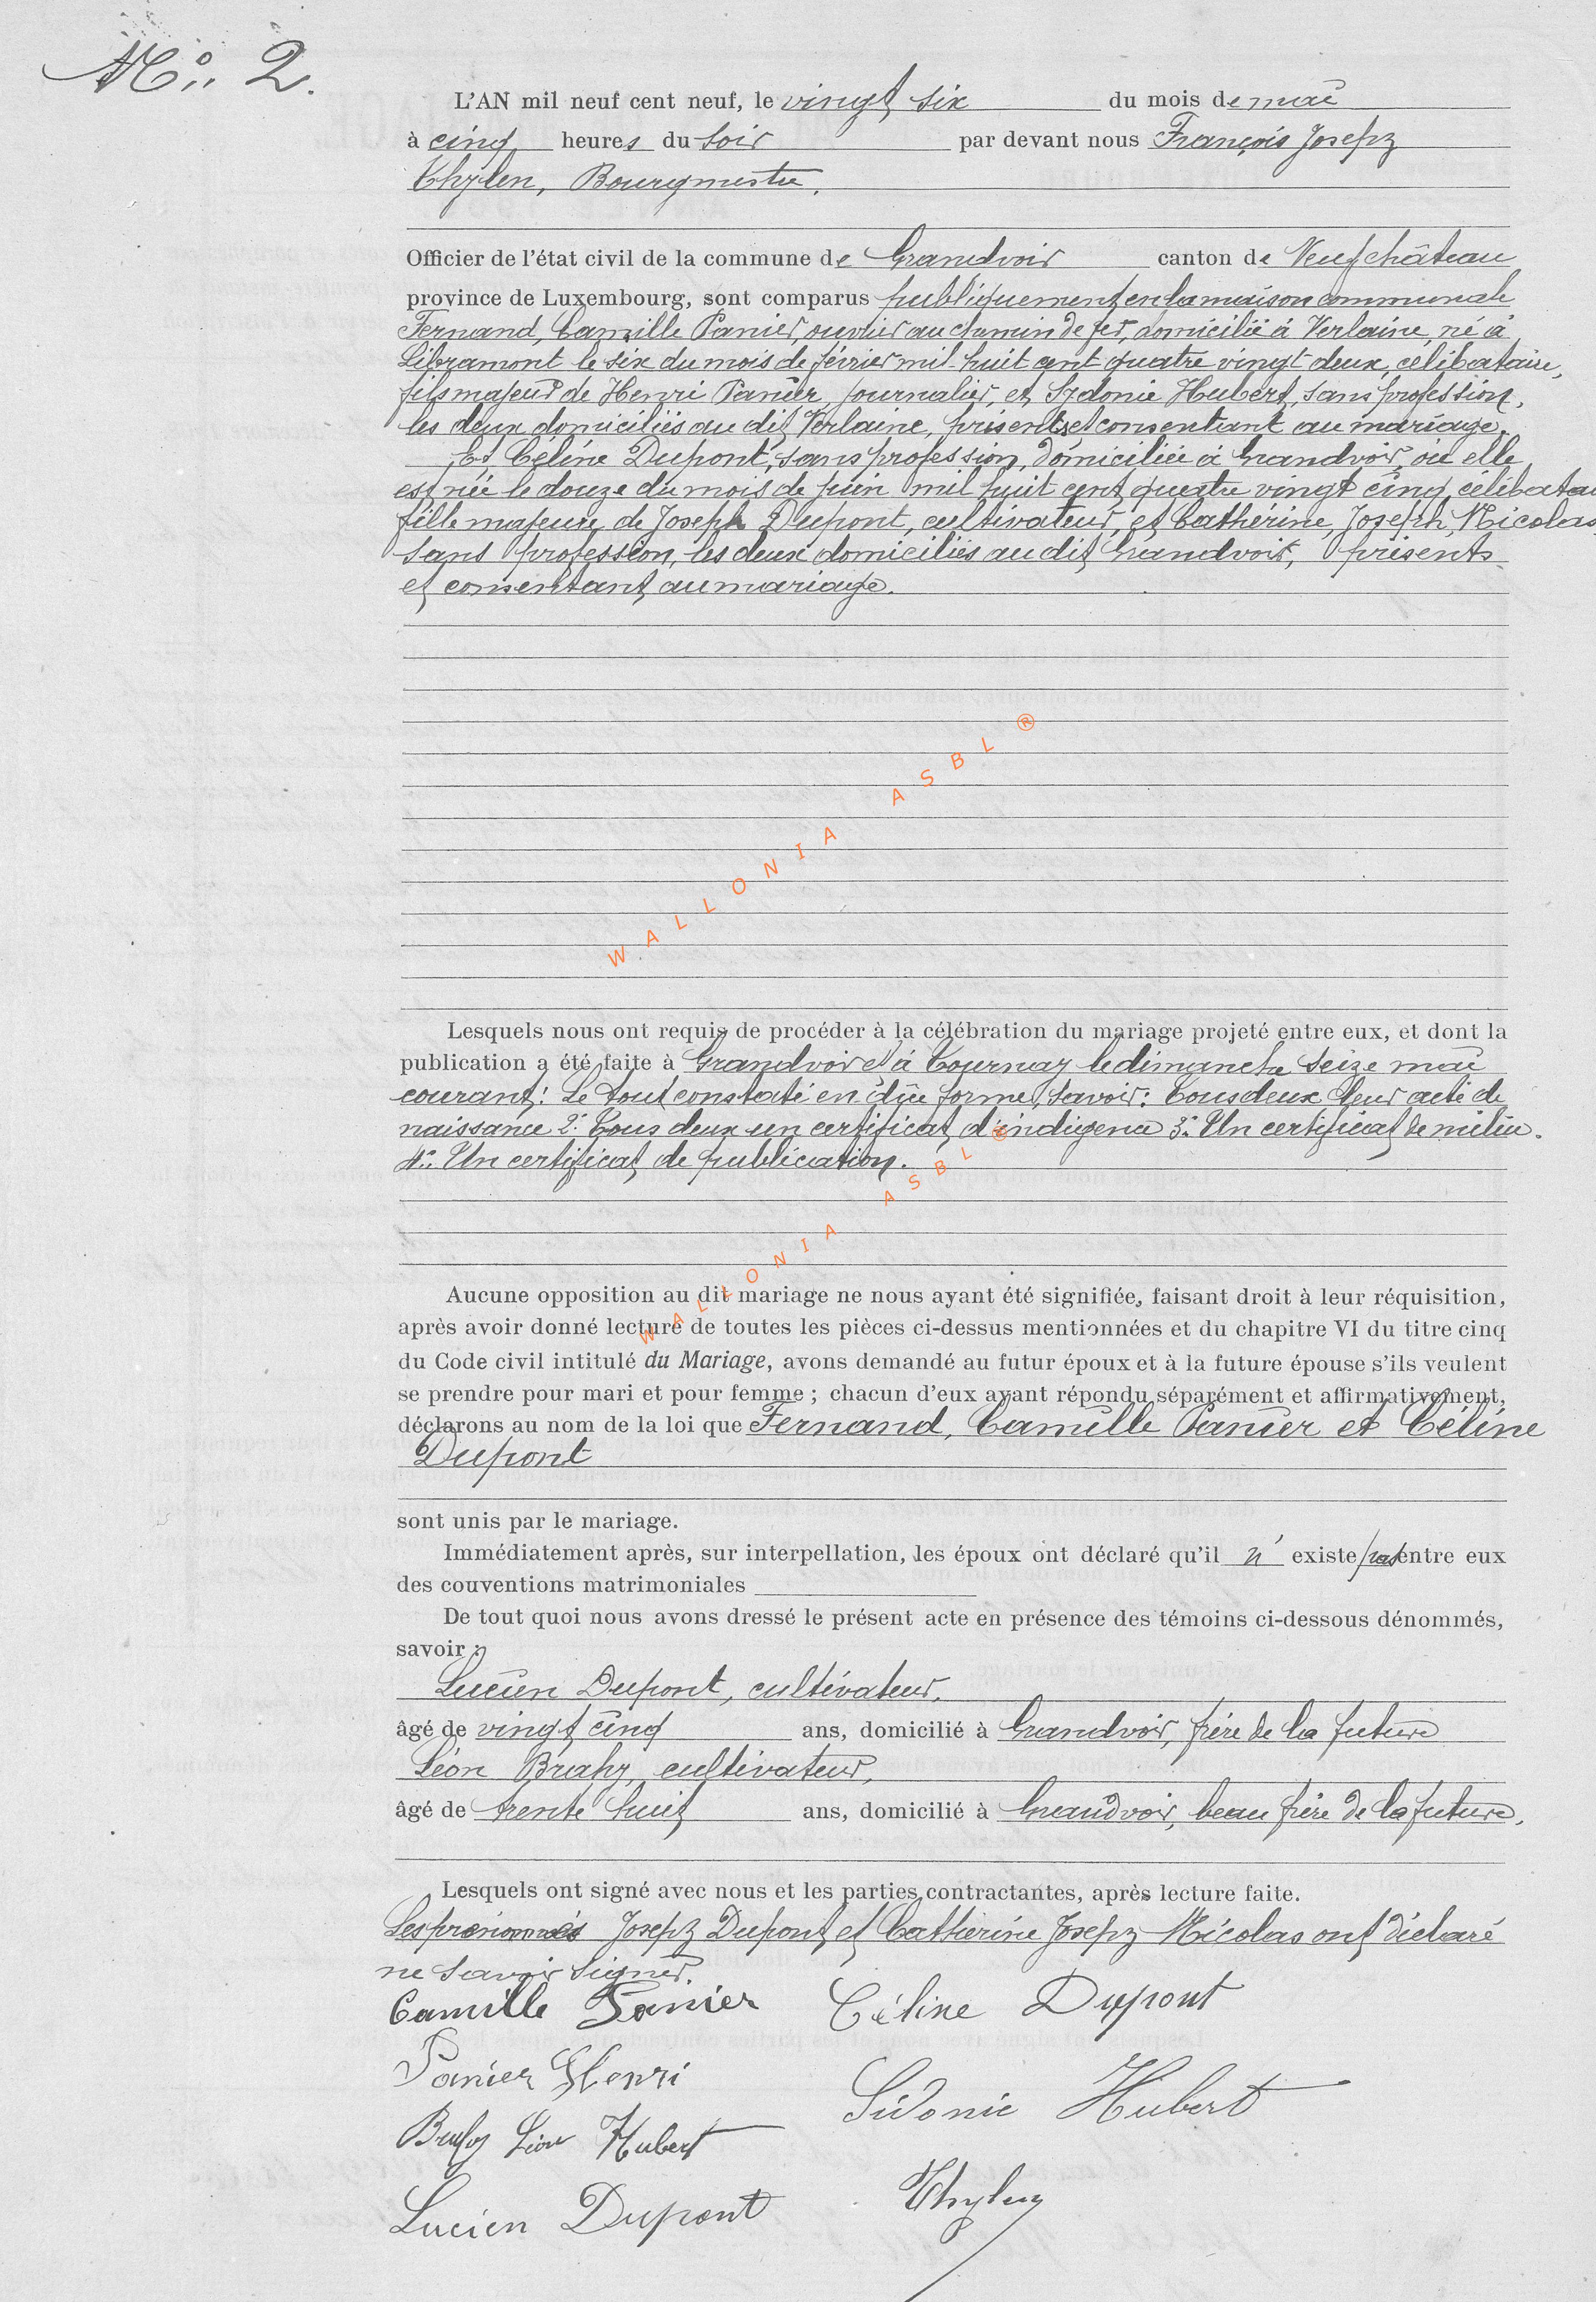 No. 2.
L'AN mil neuf cent neuf, le vingt six du mois de mai
à cinq heures du soir par devant nous François Joseph
Thylen, Bourgmestre.
Officier de l'état civil de la commune de Grandvoir canton de Neufchâteau
province de Luxembourg, sont comparus publiquement en la maison communale
Fernand, Camille Panier, ouvrier au chemin de fer, domicilié à Verlaine, né à
Libramont le six du mois de février mil huit cent quatre vingt deux, célibataire,
fils majeur de Henri Panier, journalier, et Sydonie Hubert, sans profession,
les deux domiciliés au dit Verlaine, présents et consentant au mariage.
Et Céline Dupont, sans profession, domiciliée à Grandvoir, où elle
est née le douze du mois de juin mil huit cent quatre vingt cinq, célibatai
fille majeure de Joseph Dupont, cultivateur, et Cathérine, Joseph, Nicolas,
sans profession, les deux domiciliés au dit Grandvoir, présents
et consentant au mariage.
WALLONIA ASBL ®
Lesquels nous ont requis de procéder à la célébration du mariage projeté entre eux, et dont la
publication a été faite à Grandvoir et à Tournay le dimanche seize mai
courant: Le tout constaté en dûe forme, savoir: Tous deux leur acte de
naissance 2° Tous deux un certificat d'indigence 3° Un certificat de milice.
4° Un certificat de publication.
WALLONIA ASBL ®
Aucune opposition au dit mariage ne nous ayant été signifiée, faisant droit à leur réquisition,
après avoir donné lecture de toutes les pièces ci-dessus mentionnées et du chapitre VI du titre cinq
du Code civil intitulé du Mariage, avons demandé au futur époux et à la future épouse s'ils veulent
se prendre pour mari et pour femme ; chacun d'eux ayant répondu séparément et affirmativement,
déclarons au nom de la loi que Fernand, Camille Panier et Céline
Dupont
sont unis par le mariage.
Immédiatement après, sur interpellation, les époux ont déclaré qu'il n' existe pas entre eux
des couventions matrimoniales
De tout quoi nous avons dressé le présent acte en présence des témoins ci-dessous dénommés,
savoir :
Lucien Dupont, cultivateur,
âgé de vingt cinq ans, domicilié à Grandvoir, frère de la future
Léon Brahy, cultivateur,
âgé de trente huit ans, domicilié à Grandvoir, beau frère de la future.
Lesquels ont signé avec nous et les parties contractantes, après lecture faite.
Les prénommés Joseph Dupont et Cathérine Joseph Nicolas ont déclaré
ne savoir signer.
Camille Panier Céline Dupont
Panier Henri
Sidonie Hubert
Brahy Léon Hubert
Thylen
Lucien Dupont